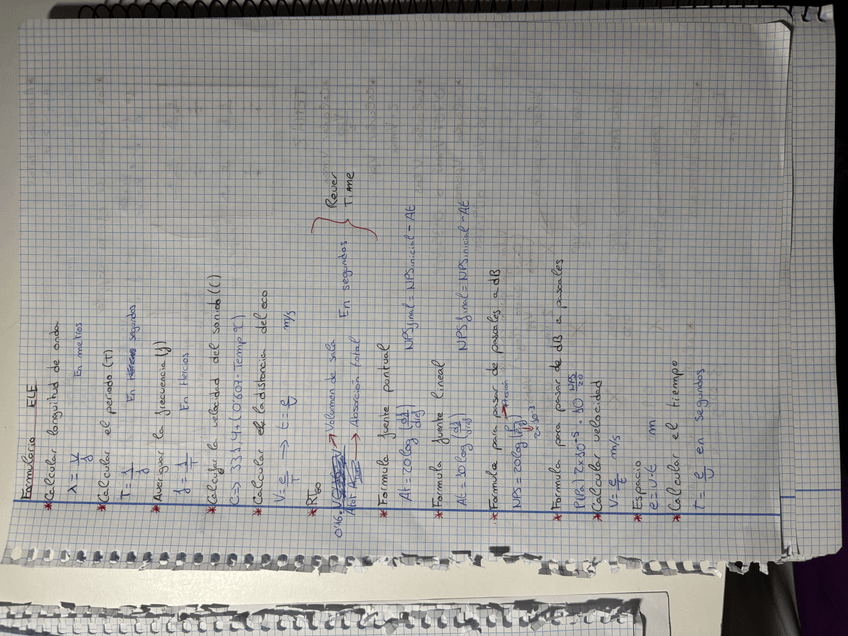 Formulario ELE
*Calcular longuitud de onda
λ = V/f En metros
*Calcular el periodo (T)
T = 1/f En segundos
*Averiguar la frecuencia (f)
f = 1/T En Hercios
*Calcular la velocidad del sonido (C)
C => 331,4 + (0,607 · Temp ℃)
*Calcular la distancia del eco
V = e/T → t = e/v m/s
*RT60
0,16 · V → Volumen de sala
Atot → Absorción total En segundos Rever Time
*Formula fuente pontual
At = 20 log (d1/d0) NPS final = NPS inicial - At
*Formula fuente lineal
At = 10 log (d1/d0) NPS final = NPS inicial - At
*Formula para pasar de pascales a dB
NPS = 20 log
*Formula para pasar de dB a pascales
P(Pa) 2x10^-5 · 10^(NPS/20)
*Calcular velocidad
V = e/t m/s
*Espacio
e = v · t m
*Calcular el tiempo
t = e/v en segundos